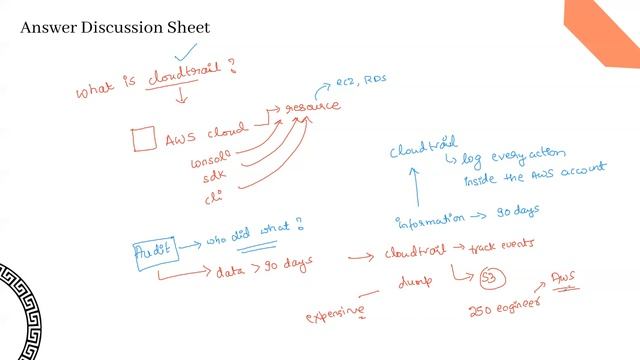 Answer Discussion Sheet
what is cloudtrail ?
ec2, RDS
resource
AWS cloud
console
sdk
cli
cloudtrail
log every action
inside the AWS account
information → 90 days
Audit → who did what ?
data > 90 days → cloudtrail → track events
dump S3
expensive
250 engineer
AWS